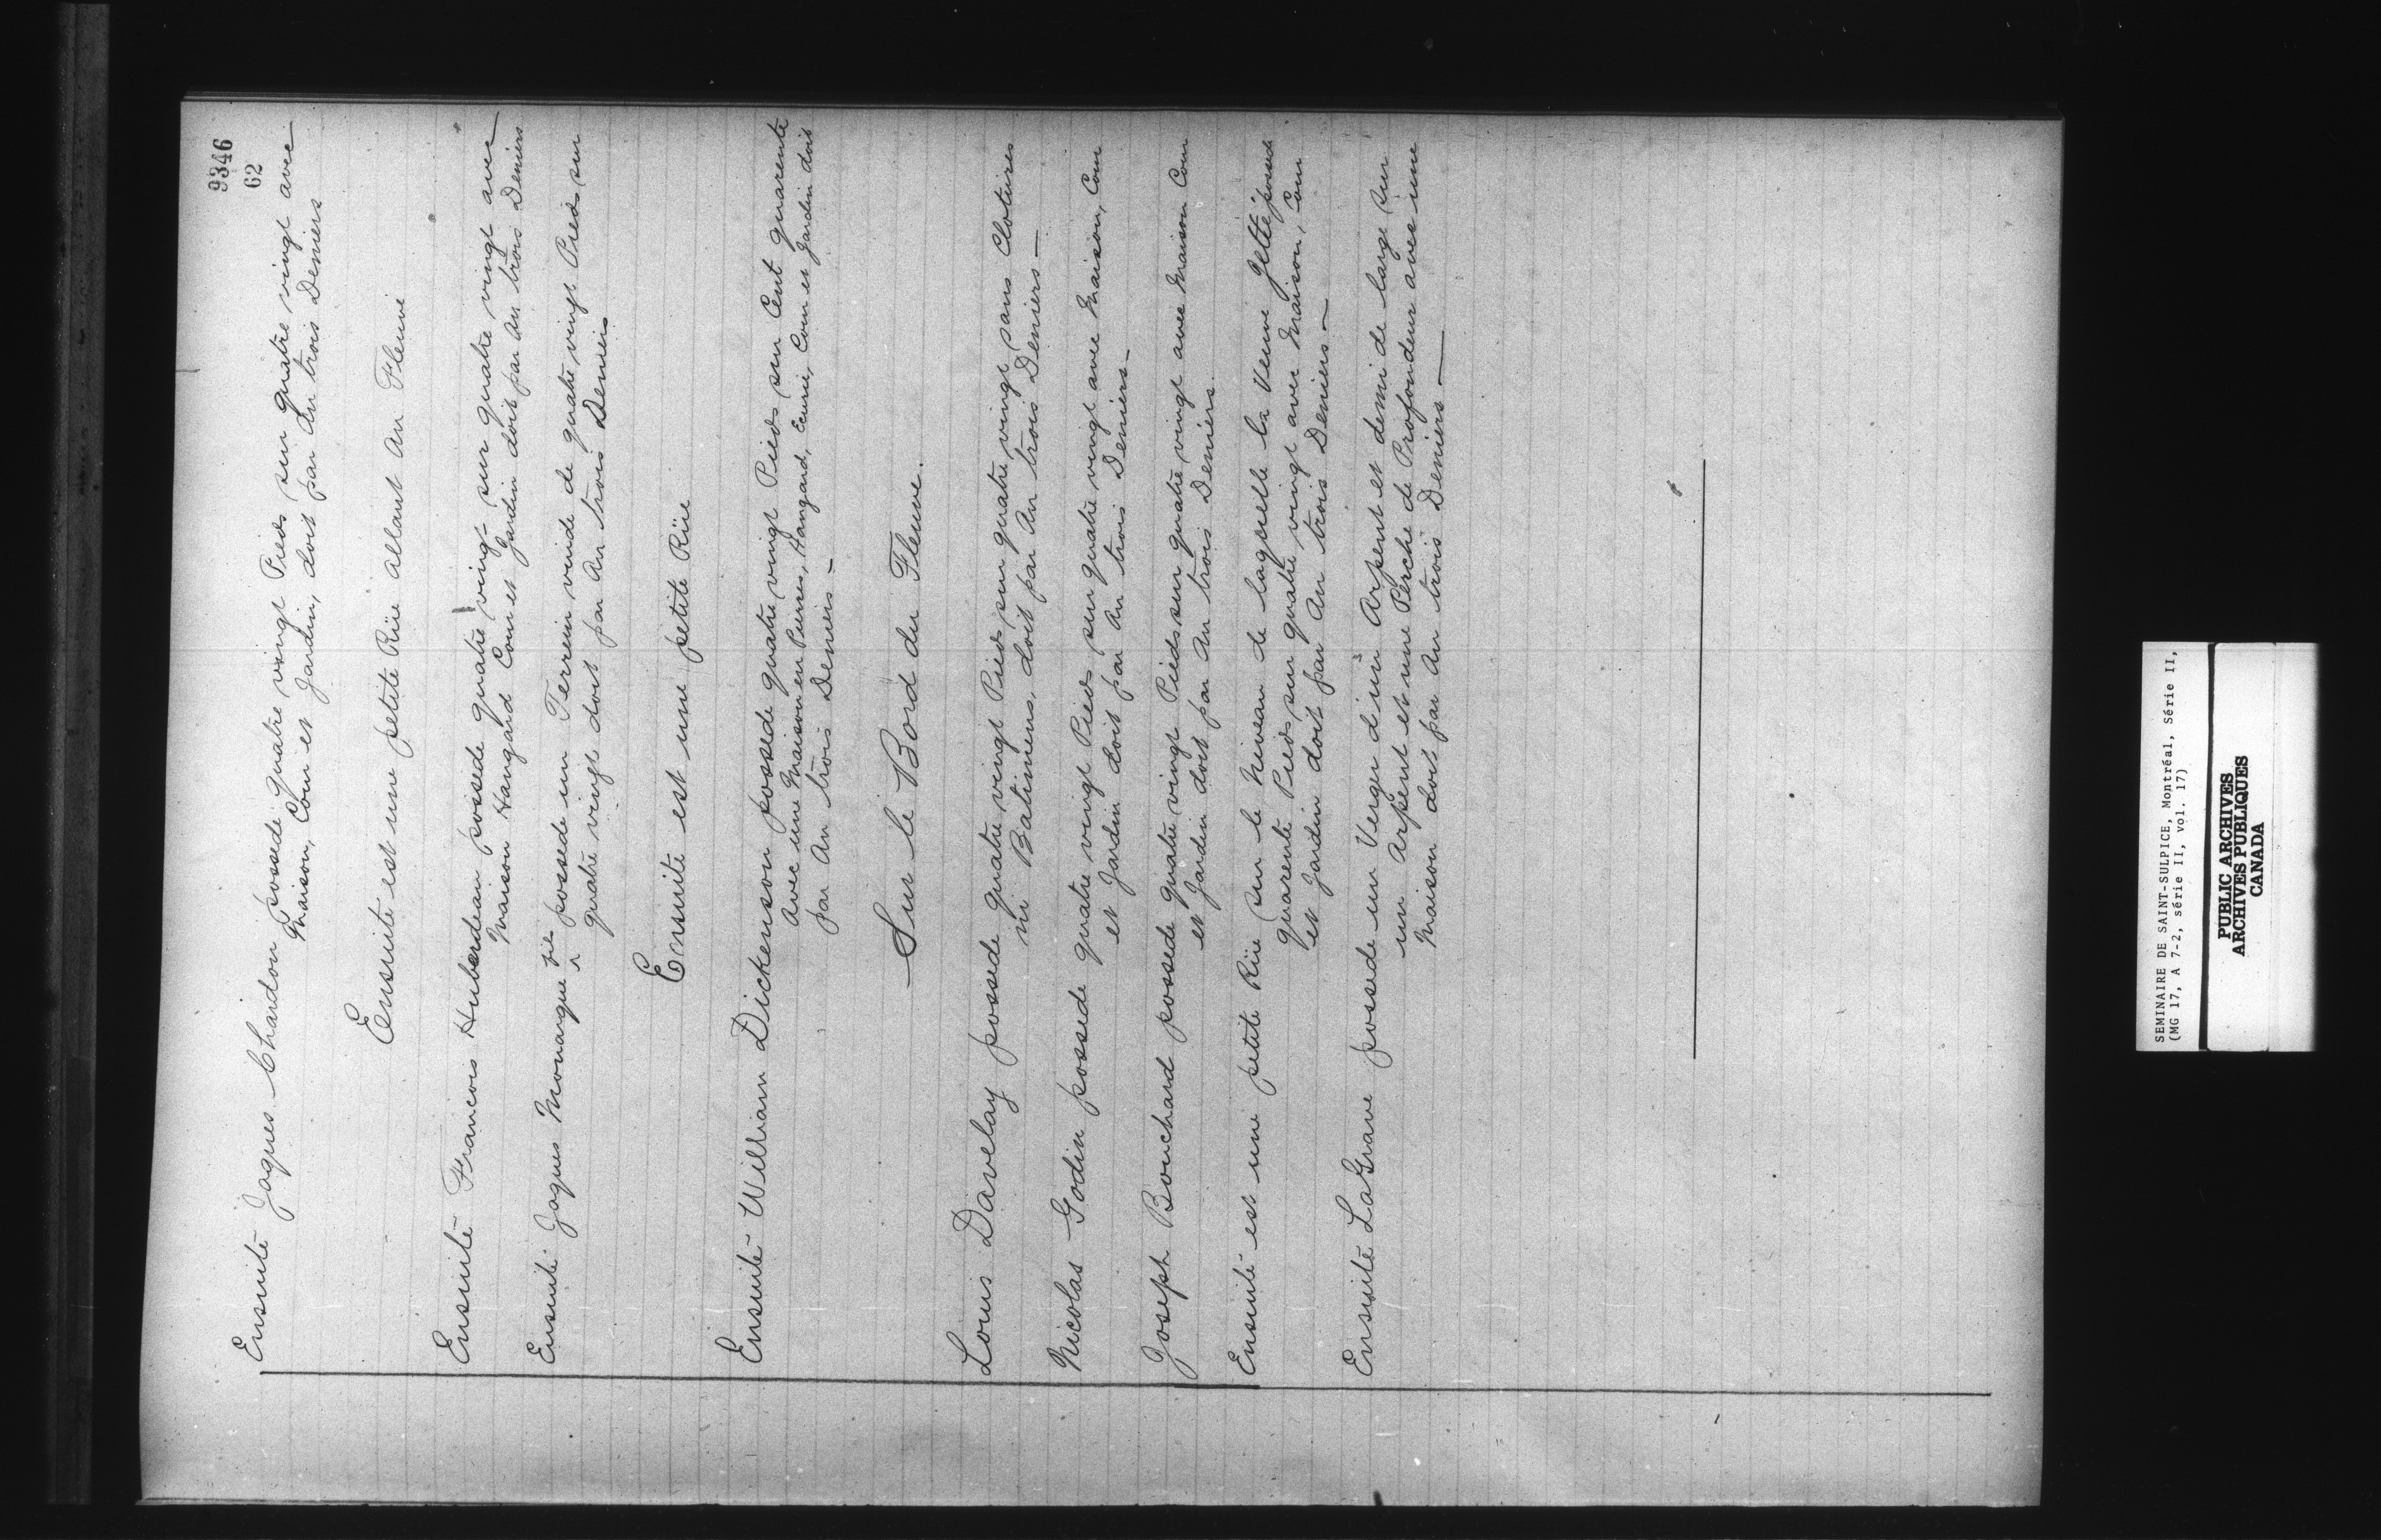 9346
62
Ensuite Jaques Chardon possede quatre vingt Pieds sur quatre vingt avec
Maison, Cour et Jardin, doit par An trois Deniers
Ensuite est une petite Rüe allant Au Fleuve
Ensuite Francois Huberdeau possede quatre vingt sur quatre vingt avec
Maison Hangard Cour et Jardin doit par An trois Deniers
Ensuite Jaques Monarque fils possede un Terrein vuide de quatre vingt Pieds sur
quatre vingt doit par An trois Deniers
Ensuite est une petite Rüe
Ensuite William Dickenson possede quatre vingt Pieds sur Cent quarente
avec une Maison en Pierres, Hangard, Ecurie, Cour et Jardin doit
par An trois Deniers -
Sur le Bord du Fleuve.
Louis Davelay possede quatre vingt Pieds sur quatre vingt sans Clotures
ni Batimens, doit par An trois Deniers —
Nicolas Godin possede quatre vingt Pieds sur quatre vingt avec Maison, Cour
et Jardin doit par An trois Deniers -
Joseph Bouchard possede quatre vingt Pieds sur quatre vingt avec Maison Cour
et Jardin doit par An trois Deniers.
Ensuite est une petite Rüe sur le Niveau de laquelle la Veuve possede
quarente Pieds sur quatre vingt avec Maison, Cour
et Jardin doit par An trois Deniers -
Ensuite LaGrave possede un Verger d'un Arpent et demi de large sur
un Arpent et une Perche de Profondeur avec une
Maison doit par An trois Deniers —
SEMINAIRE DE SAINT-SULPICE, Montréal, Série II,
(MG 17, A 7-2, série II, vol. 17)
PUBLIC ARCHIVES
ARCHIVES PUBLIQUES
CANADA